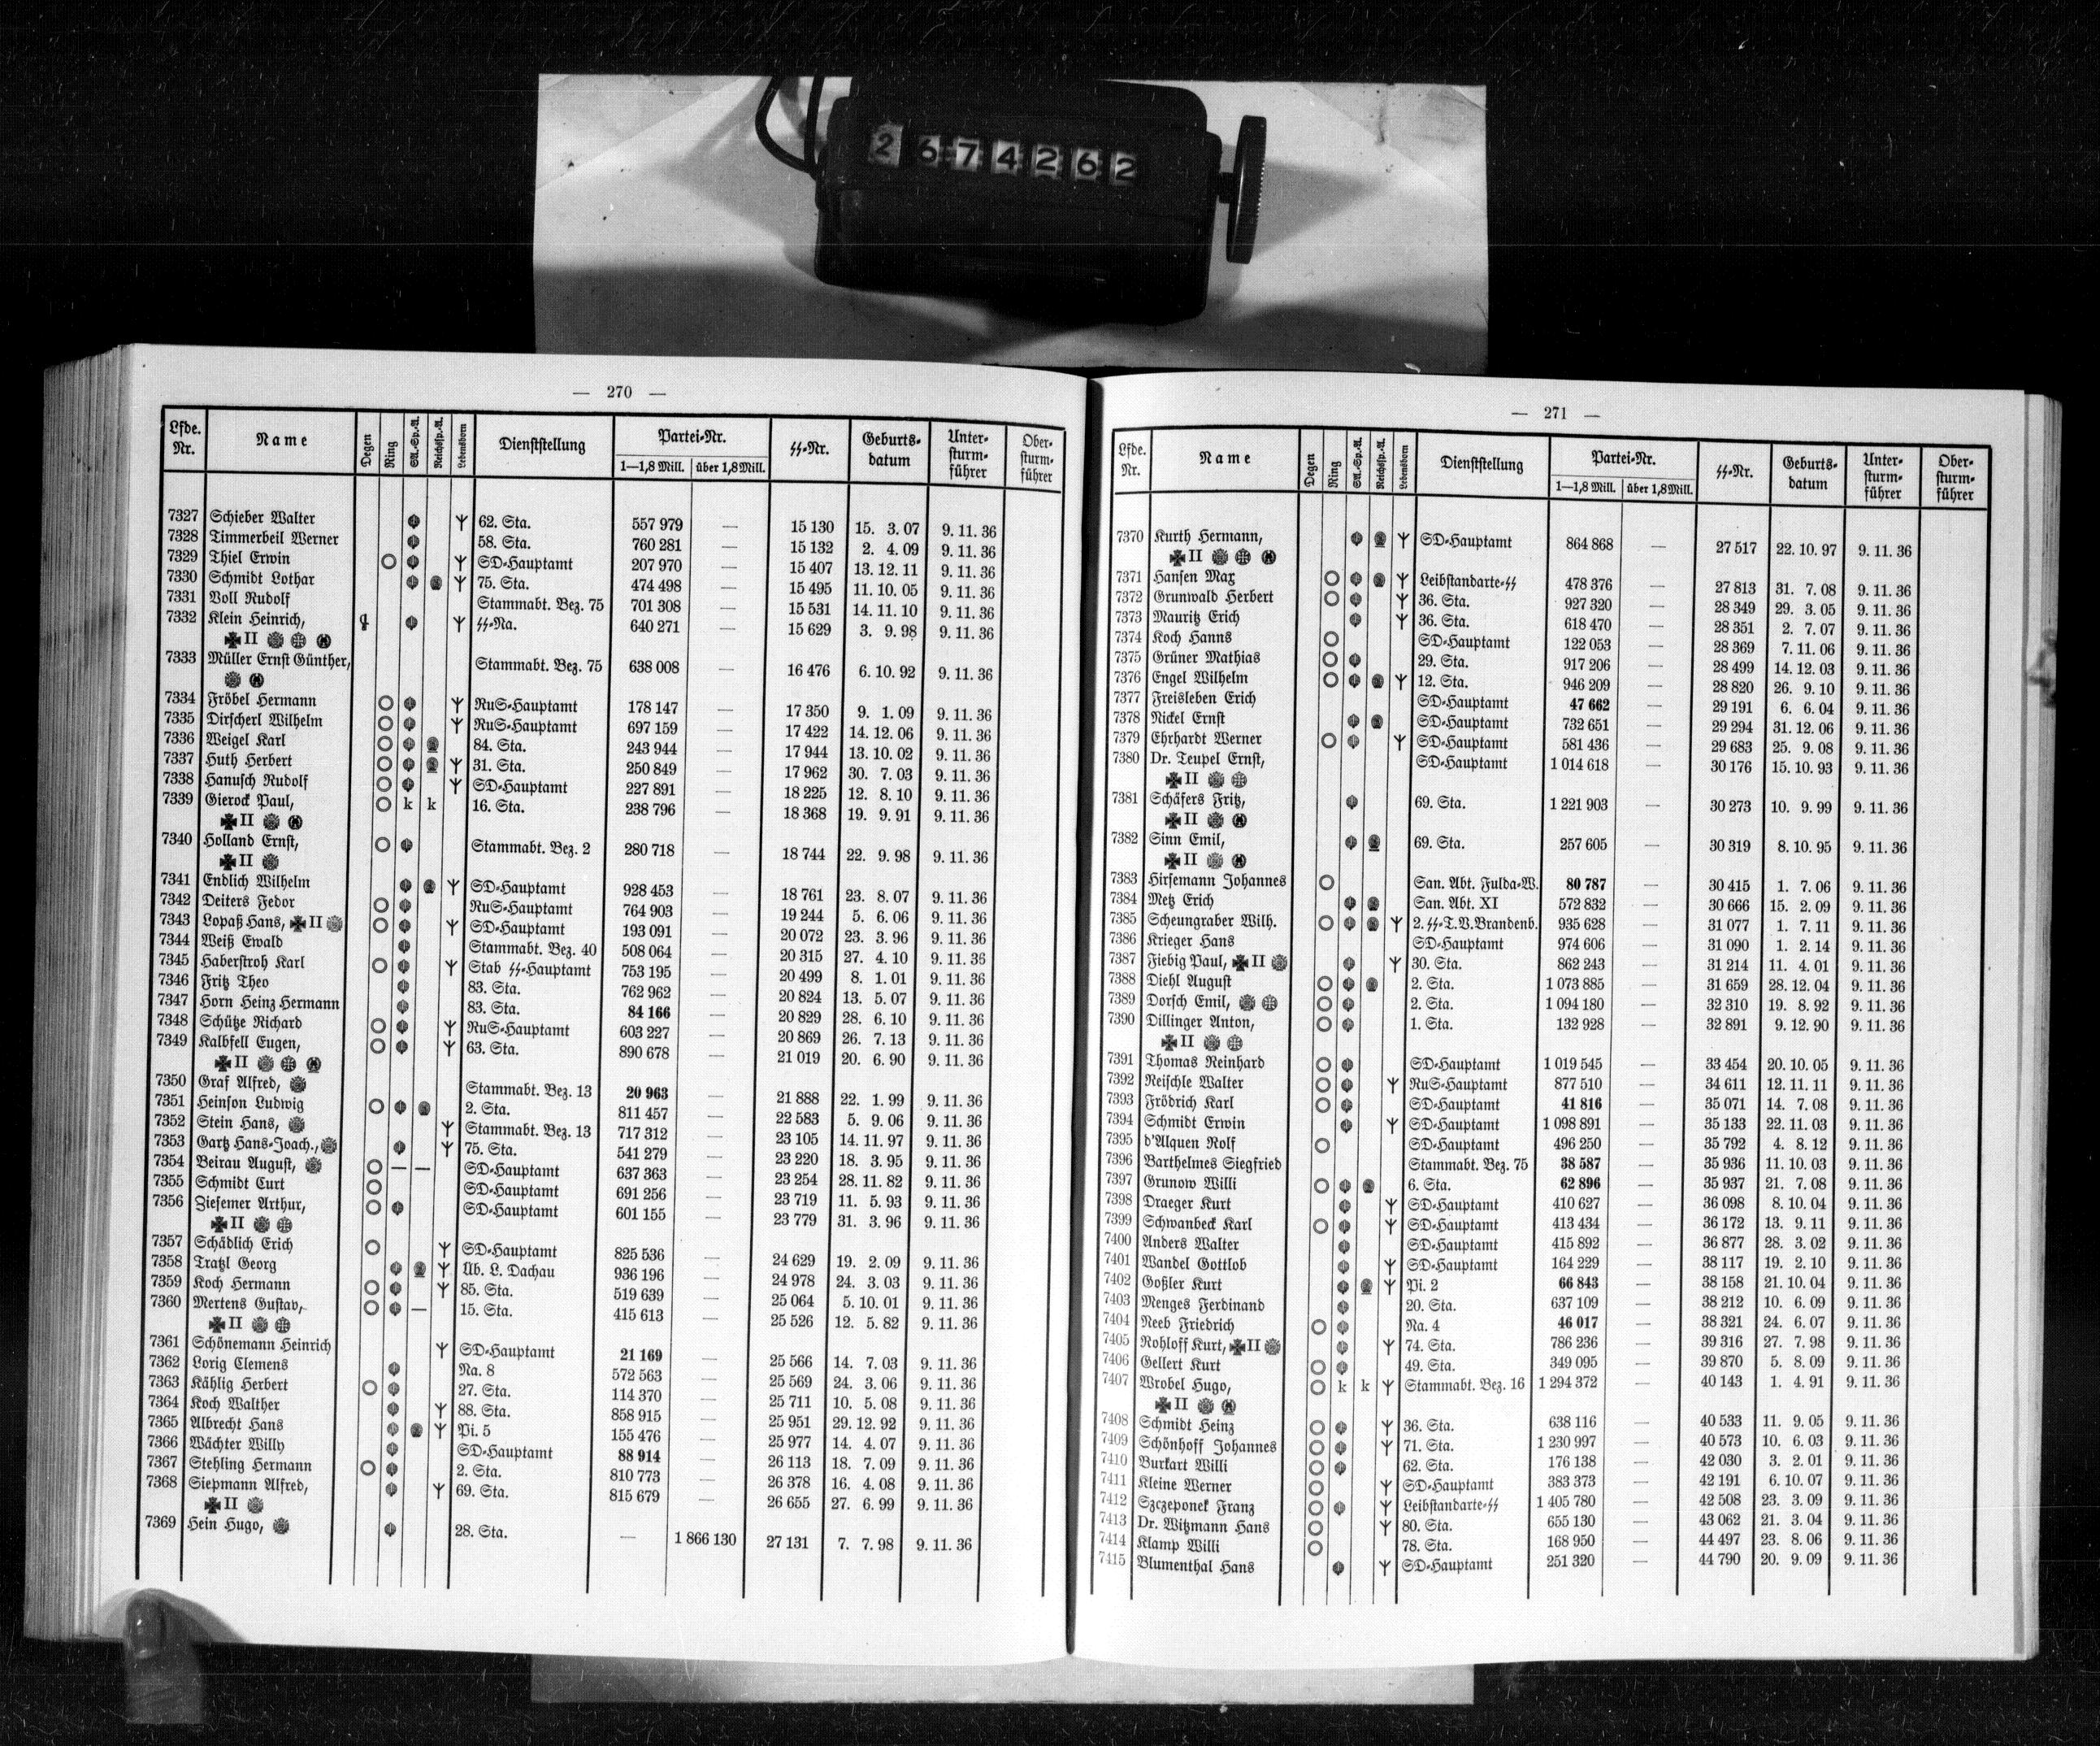 2 6 7 4 2 6 2
— 270 —
Lfde. Nr. Name Degen Ring SA.-Sp.-A. Reichssp.-A. Lebensborn Dienststellung Partei-Nr. 1—1,8 Mill. über 1,8 Mill. SS-Nr. Geburts-datum Unter-sturm-führer Ober-sturm-führer
7327 Schieber Walter 62. Sta. 557 979 — 15 130 15. 3. 07 9. 11. 36
7328 Timmerbeil Werner 58. Sta. 760 281 — 15 132 2. 4. 09 9. 11. 36
7329 Thiel Erwin SD-Hauptamt 207 970 — 15 407 13. 12. 11 9. 11. 36
7330 Schmidt Lothar 75. Sta. 474 498 — 15 495 11. 10. 05 9. 11. 36
7331 Voll Rudolf Stammabt. Bez. 75 701 308 — 15 531 14. 11. 10 9. 11. 36
7332 Klein Heinrich, SS-Na. 640 271 — 15 629 3. 9. 98 9. 11. 36
II
7333 Müller Ernst Günther, Stammabt. Bez. 75 638 008 — 16 476 6. 10. 92 9. 11. 36
7334 Fröbel Hermann RuS-Hauptamt 178 147 — 17 350 9. 1. 09 9. 11. 36
7335 Dirscherl Wilhelm RuS-Hauptamt 697 159 — 17 422 14. 12. 06 9. 11. 36
7336 Weigel Karl 84. Sta. 243 944 — 17 944 13. 10. 02 9. 11. 36
7337 Huth Herbert 31. Sta. 250 849 — 17 962 30. 7. 03 9. 11. 36
7338 Hanusch Rudolf SD-Hauptamt 227 891 — 18 225 12. 8. 10 9. 11. 36
7339 Gierock Paul, k k 16. Sta. 238 796 — 18 368 19. 9. 91 9. 11. 36
II
7340 Holland Ernst, Stammabt. Bez. 2 280 718 — 18 744 22. 9. 98 9. 11. 36
II
7341 Endlich Wilhelm SD-Hauptamt 928 453 — 18 761 23. 8. 07 9. 11. 36
7342 Deiters Fedor RuS-Hauptamt 764 903 — 19 244 5. 6. 06 9. 11. 36
7343 Lopaß Hans, II SD-Hauptamt 193 091 — 20 072 23. 3. 96 9. 11. 36
7344 Weiß Ewald Stammabt. Bez. 40 508 064 — 20 315 27. 4. 10 9. 11. 36
7345 Haberstroh Karl Stab SS-Hauptamt 753 195 — 20 499 8. 1. 01 9. 11. 36
7346 Fritz Theo 83. Sta. 762 962 — 20 824 13. 5. 07 9. 11. 36
7347 Horn Heinz Hermann 83. Sta. 84 166 — 20 829 28. 6. 10 9. 11. 36
7348 Schütze Richard RuS-Hauptamt 603 227 — 20 869 26. 7. 13 9. 11. 36
7349 Kalbfell Eugen, 63. Sta. 890 678 — 21 019 20. 6. 90 9. 11. 36
II
7350 Graf Alfred, Stammabt. Bez. 13 20 963 — 21 888 22. 1. 99 9. 11. 36
7351 Heinson Ludwig 2. Sta. 811 457 — 22 583 5. 9. 06 9. 11. 36
7352 Stein Hans, Stammabt. Bez. 13 717 312 — 23 105 14. 11. 97 9. 11. 36
7353 Gartz Hans-Joach., 75. Sta. 541 279 — 23 220 18. 3. 95 9. 11. 36
7354 Beirau August, — — SD-Hauptamt 637 363 — 23 254 28. 11. 82 9. 11. 36
7355 Schmidt Curt SD-Hauptamt 691 256 — 23 719 11. 5. 93 9. 11. 36
7356 Ziesemer Arthur, SD-Hauptamt 601 155 — 23 779 31. 3. 96 9. 11. 36
II
7357 Schädlich Erich SD-Hauptamt 825 536 — 24 629 19. 2. 09 9. 11. 36
7358 Tratzl Georg Üb. L. Dachau 936 196 — 24 978 24. 3. 03 9. 11. 36
7359 Koch Hermann 85. Sta. 519 639 — 25 064 5. 10. 01 9. 11. 36
7360 Mertens Gustav, — 15. Sta. 415 613 — 25 526 12. 5. 82 9. 11. 36
II
7361 Schönemann Heinrich SD-Hauptamt 21 169 — 25 566 14. 7. 03 9. 11. 36
7362 Lorig Clemens Na. 8 572 563 — 25 569 24. 3. 06 9. 11. 36
7363 Kählig Herbert 27. Sta. 114 370 — 25 711 10. 5. 08 9. 11. 36
7364 Koch Walther 88. Sta. 858 915 — 25 951 29. 12. 92 9. 11. 36
7365 Albrecht Hans Pi. 5 155 476 — 25 977 14. 4. 07 9. 11. 36
7366 Wächter Willy SD-Hauptamt 88 914 — 26 113 18. 7. 09 9. 11. 36
7367 Stehling Hermann 2. Sta. 810 773 — 26 378 16. 4. 08 9. 11. 36
7368 Siepmann Alfred, 69. Sta. 815 679 — 26 655 27. 6. 99 9. 11. 36
II
7369 Hein Hugo, 28. Sta. — 1 866 130 27 131 7. 7. 98 9. 11. 36
— 271 —
Lfde. Nr. Name Degen Ring SA.-Sp.-A. Reichssp.-A. Lebensborn Dienststellung Partei-Nr. 1—1,8 Mill. über 1,8 Mill. SS-Nr. Geburts-datum Unter-sturm-führer Ober-sturm-führer
7370 Kurth Hermann, SD-Hauptamt 864 868 — 27 517 22. 10. 97 9. 11. 36
II
7371 Hansen Max Leibstandarte-SS 478 376 — 27 813 31. 7. 08 9. 11. 36
7372 Grunwald Herbert 36. Sta. 927 320 — 28 349 29. 3. 05 9. 11. 36
7373 Mauritz Erich 36. Sta. 618 470 — 28 351 2. 7. 07 9. 11. 36
7374 Koch Hanns SD-Hauptamt 122 053 — 28 369 7. 11. 06 9. 11. 36
7375 Grüner Mathias 29. Sta. 917 206 — 28 499 14. 12. 03 9. 11. 36
7376 Engel Wilhelm 12. Sta. 946 209 — 28 820 26. 9. 10 9. 11. 36
7377 Freisleben Erich SD-Hauptamt 47 662 — 29 191 6. 6. 04 9. 11. 36
7378 Nickel Ernst SD-Hauptamt 732 651 — 29 294 31. 12. 06 9. 11. 36
7379 Ehrhardt Werner SD-Hauptamt 581 436 — 29 683 25. 9. 08 9. 11. 36
7380 Dr. Teupel Ernst, SD-Hauptamt 1 014 618 — 30 176 15. 10. 93 9. 11. 36
II
7381 Schäfers Fritz, 69. Sta. 1 221 903 — 30 273 10. 9. 99 9. 11. 36
II
7382 Sinn Emil, 69. Sta. 257 605 — 30 319 8. 10. 95 9. 11. 36
II
7383 Hirsemann Johannes San. Abt. Fulda-W. 80 787 — 30 415 1. 7. 06 9. 11. 36
7384 Metz Erich San. Abt. XI 572 832 — 30 666 15. 2. 09 9. 11. 36
7385 Scheungraber Wilh. 2. SS-T.V. Brandenb. 935 628 — 31 077 1. 7. 11 9. 11. 36
7386 Krieger Hans SD-Hauptamt 974 606 — 31 090 1. 2. 14 9. 11. 36
7387 Fiebig Paul, II 30. Sta. 862 243 — 31 214 11. 4. 01 9. 11. 36
7388 Diehl August 2. Sta. 1 073 885 — 31 659 28. 12. 04 9. 11. 36
7389 Dorsch Emil, 2. Sta. 1 094 180 — 32 310 19. 8. 92 9. 11. 36
7390 Dillinger Anton, 1. Sta. 132 928 — 32 891 9. 12. 90 9. 11. 36
II
7391 Thomas Reinhard SD-Hauptamt 1 019 545 — 33 454 20. 10. 05 9. 11. 36
7392 Reischle Walter RuS-Hauptamt 877 510 — 34 611 12. 11. 11 9. 11. 36
7393 Frödrich Karl SD-Hauptamt 41 816 — 35 071 14. 7. 08 9. 11. 36
7394 Schmidt Erwin SD-Hauptamt 1 098 891 — 35 133 22. 11. 03 9. 11. 36
7395 d'Alquen Rolf SD-Hauptamt 496 250 — 35 792 4. 8. 12 9. 11. 36
7396 Barthelmes Siegfried Stammabt. Bez. 75 38 587 — 35 936 11. 10. 03 9. 11. 36
7397 Grunow Willi 6. Sta. 62 896 — 35 937 21. 7. 08 9. 11. 36
7398 Draeger Kurt SD-Hauptamt 410 627 — 36 098 8. 10. 04 9. 11. 36
7399 Schwanbeck Karl SD-Hauptamt 413 434 — 36 172 13. 9. 11 9. 11. 36
7400 Anders Walter SD-Hauptamt 415 892 — 36 877 28. 3. 02 9. 11. 36
7401 Wandel Gottlob SD-Hauptamt 164 229 — 38 117 19. 2. 10 9. 11. 36
7402 Goßler Kurt Pi. 2 66 843 — 38 158 21. 10. 04 9. 11. 36
7403 Menges Ferdinand 20. Sta. 637 109 — 38 212 10. 6. 09 9. 11. 36
7404 Neeb Friedrich Na. 4 46 017 — 38 321 24. 6. 07 9. 11. 36
7405 Rohloff Kurt, II 74. Sta. 786 236 — 39 316 27. 7. 98 9. 11. 36
7406 Gellert Kurt 49. Sta. 349 095 — 39 870 5. 8. 09 9. 11. 36
7407 Wrobel Hugo, k k Stammabt. Bez. 16 1 294 372 — 40 143 1. 4. 91 9. 11. 36
II
7408 Schmidt Heinz 36. Sta. 638 116 — 40 533 11. 9. 05 9. 11. 36
7409 Schönhoff Johannes 71. Sta. 1 230 997 — 40 573 10. 6. 03 9. 11. 36
7410 Burkart Willi 62. Sta. 176 138 — 42 030 3. 2. 01 9. 11. 36
7411 Kleine Werner SD-Hauptamt 383 373 — 42 191 6. 10. 07 9. 11. 36
7412 Szczeponek Franz Leibstandarte-SS 1 405 780 — 42 508 23. 3. 09 9. 11. 36
7413 Dr. Witzmann Hans 80. Sta. 655 130 — 43 062 21. 3. 04 9. 11. 36
7414 Klamp Willi 78. Sta. 168 950 — 44 497 23. 8. 06 9. 11. 36
7415 Blumenthal Hans SD-Hauptamt 251 320 — 44 790 20. 9. 09 9. 11. 36